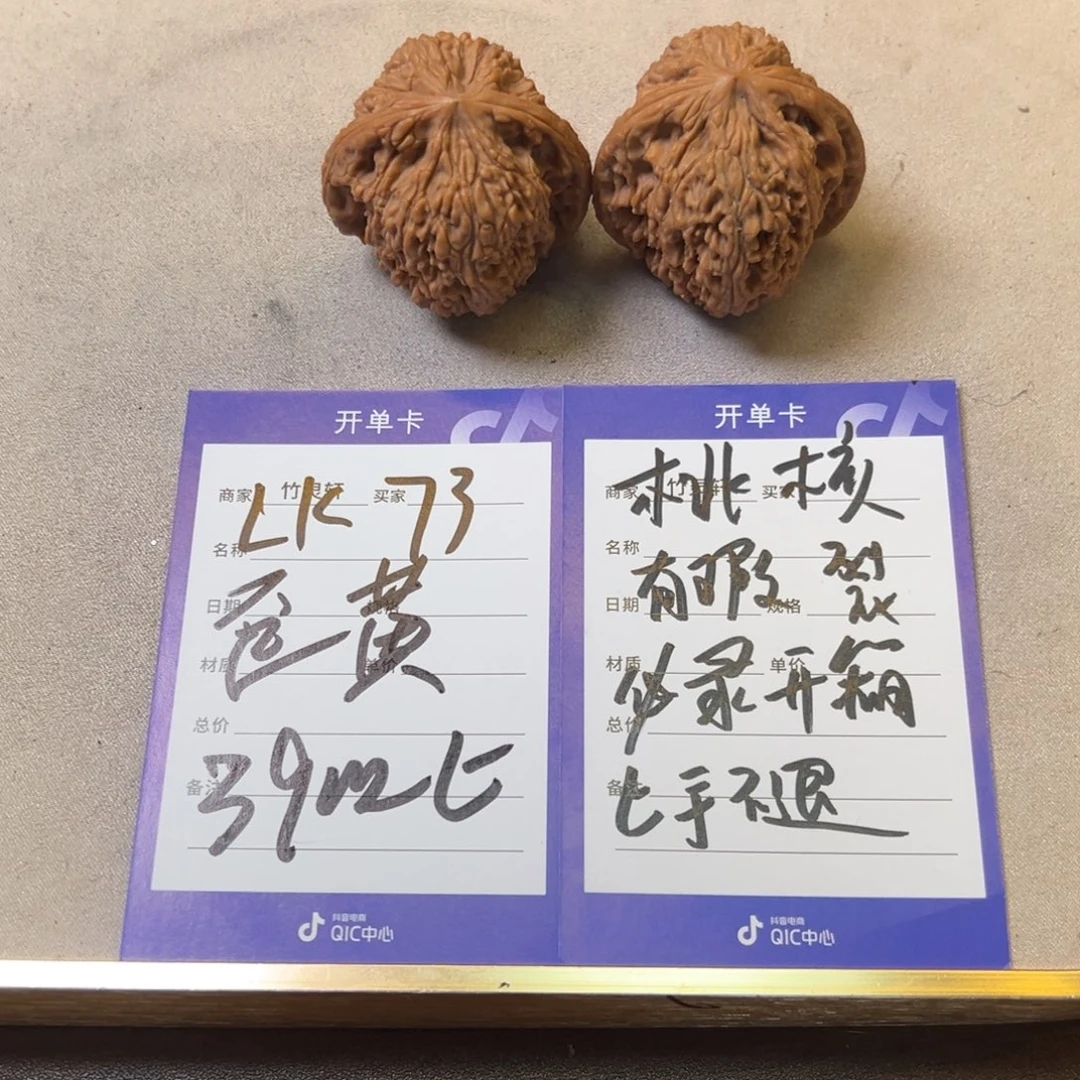 开单卡
商家 竹灵轩 买家
LK 73
名称
日期 规格
黄
材质 单价
总价
39m上
备注
抖音电商
QIC中心
开单卡
商家 竹灵轩 买家
桃核
名称
有暇 裂
日期 规格
材质 单价
必录开箱
总价
上手不退
备注
抖音电商
QIC中心